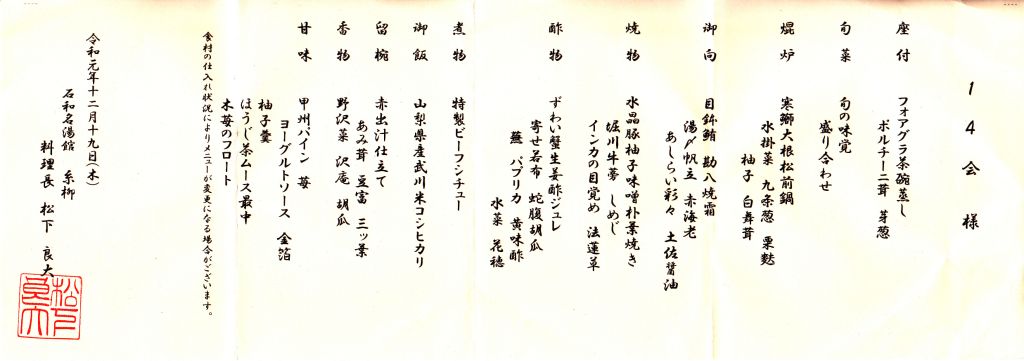 14会 様
座付 フォアグラ茶碗蒸し
ポルチーニ茸 芽葱
旬菜 旬の味覚
盛り合わせ
焜炉 寒鰤大根松前鍋
水掛菜 九条葱 栗麩
柚子 白舞茸
御向 目鉢鮪 勘八焼霜
湯〆帆立 赤海老
あしらい彩々 土佐醤油
焼物 水晶豚柚子味噌朴葉焼き
堀川牛蒡 しめじ
インカの目覚め 法蓮草
酢物 ずわい蟹生姜酢ジュレ
寄せ若布 蛇腹胡瓜
蕪 パプリカ 黄味酢
水菜 花穂
煮物 特製ビーフシチュー
御飯 山梨県産武川米コシヒカリ
留椀 赤出汁仕立て
あみ茸 豆富 三ッ葉
香物 野沢菜 沢庵 胡瓜
甘味 甲州パイン 苺
ヨーグルトソース 金箔
柚子羹
ほうじ茶ムース最中
木苺のフロート
食材の仕入れ状況によりメニューが変更になる場合がございます。
令和元年十二月十九日(木)
石和名湯館 糸柳
料理長 松下 良大
松下良大